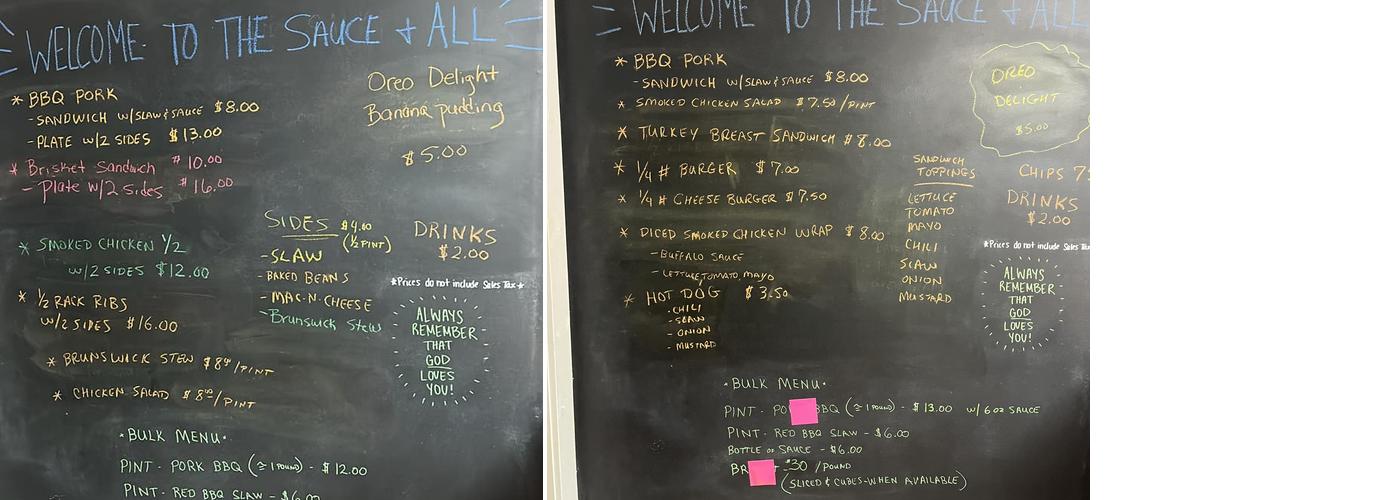 WELCOME TO THE SAUCE + ALL
* BBQ PORK
- SANDWICH W/SLAW & SAUCE $8.00
- PLATE W/2 SIDES $13.00
* Brisket Sandwich $10.00
- Plate w/2 sides $16.00
* SMOKED CHICKEN 1/2
W/2 SIDES $12.00
* 1/2 RACK RIBS
W/2 SIDES $16.00
* BRUNSWICK STEW $8.00/PINT
* CHICKEN SALAD $8.00/PINT
Oreo Delight
Banana pudding
$5.00
SIDES $4.00
(1/2 PINT)
- SLAW
- BAKED BEANS
- MAC-N-CHEESE
- Brunswick Stew
DRINKS
$2.00
*Prices do not include Sales Tax*
ALWAYS
REMEMBER
THAT
GOD
LOVES
YOU!
· BULK MENU ·
PINT - PORK BBQ (≅ 1 POUND) - $12.00
PINT - RED BBQ SLAW - $6.00
WELCOME TO THE SAUCE + ALL
* BBQ PORK
- SANDWICH W/SLAW & SAUCE $8.00
* SMOKED CHICKEN SALAD $7.50/PINT
* TURKEY BREAST SANDWICH $8.00
* 1/4 # BURGER $7.00
* 1/4 # CHEESE BURGER $7.50
* DICED SMOKED CHICKEN WRAP $8.00
- BUFFALO SAUCE
- LETTUCE TOMATO MAYO
* HOT DOG $3.50
· CHILI
- SLAW
- ONION
- MUSTARD
SANDWICH
TOPPINGS
LETTUCE
TOMATO
MAYO
CHILI
SLAW
ONION
MUSTARD
OREO
DELIGHT
$5.00
CHIPS 75
DRINKS
$2.00
*Prices do not include Sales Tax
ALWAYS
REMEMBER
THAT
GOD
LOVES
YOU!
· BULK MENU ·
PINT - PO BBQ (≅ 1 POUND) - $13.00 W/ 6 OZ SAUCE
PINT - RED BBQ SLAW - $6.00
BOTTLE OF SAUCE - $6.00
BR - $30 /POUND
(SLICED & CUBES-WHEN AVAILABLE)